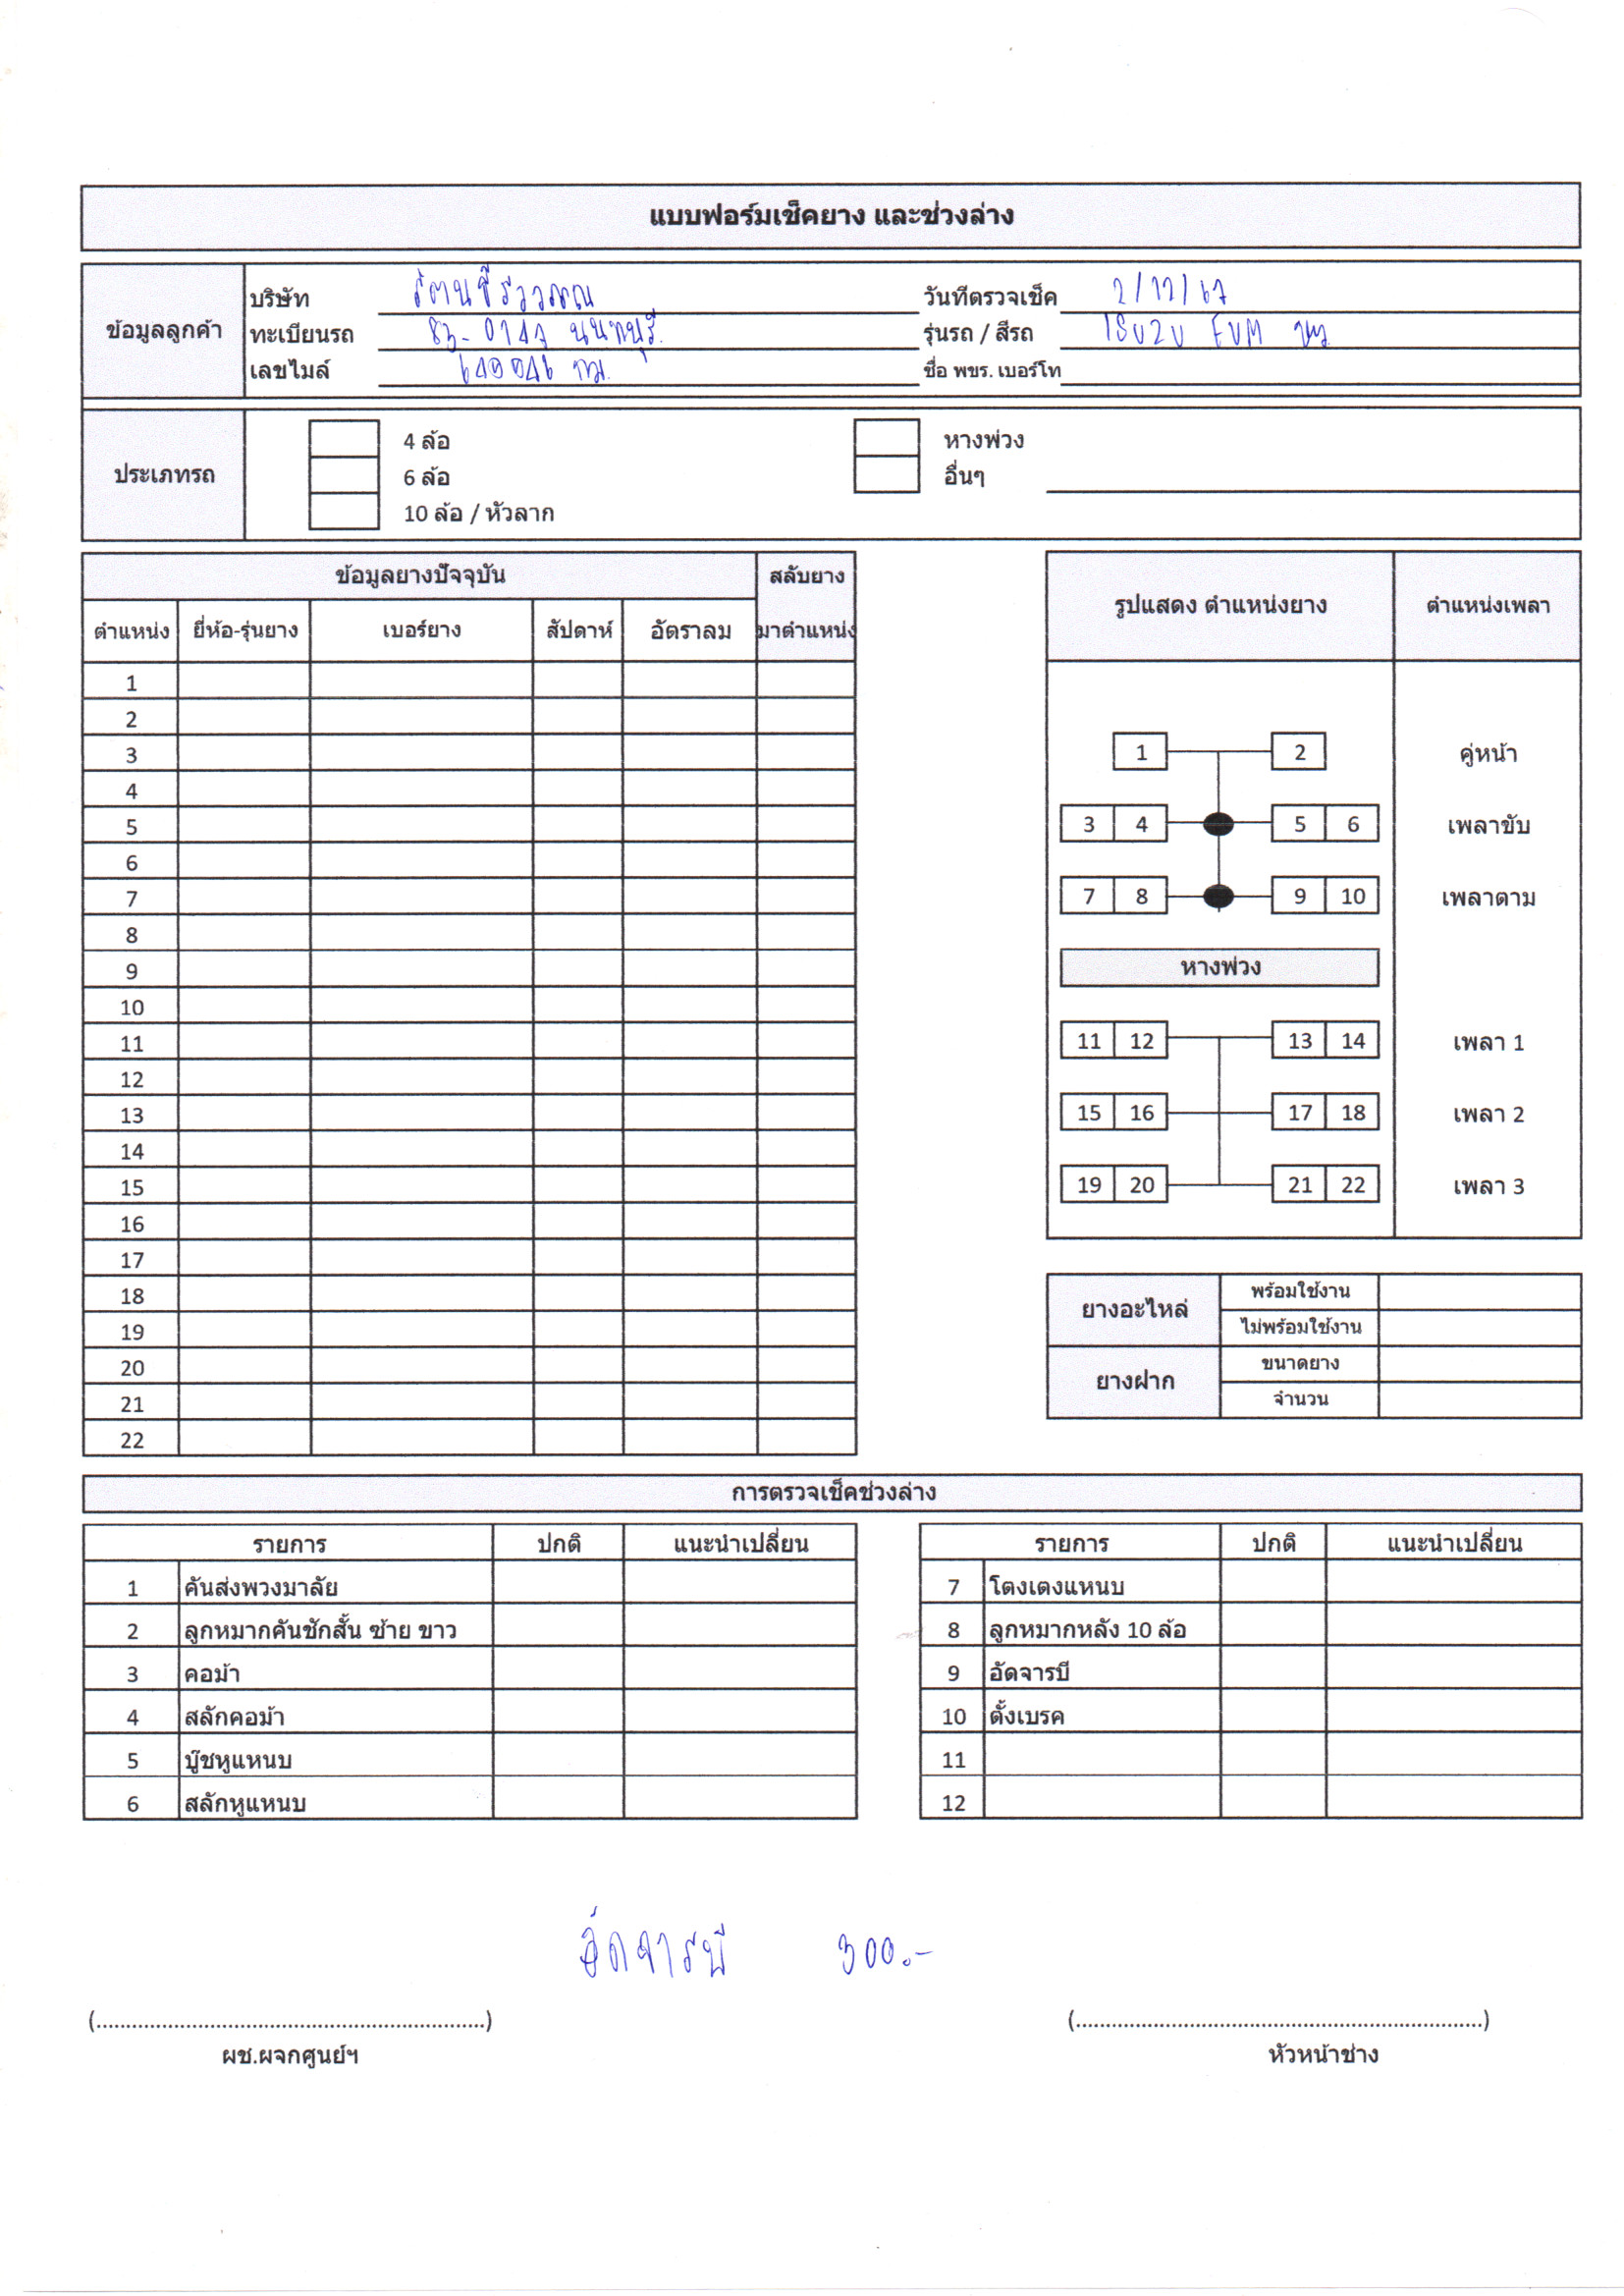 แบบฟอร์มเช็คยาง และช่วงล่าง
ข้อมูลลูกค้า
บริษัท
วันที่ตรวจเช็ค 2/12/67
ทะเบียนรถ นนทบุรี
รุ่นรถ / สีรถ ISUZU
เลขไมล์ กม.
ชื่อ พขร. เบอร์โท
ประเภทรถ
4 ล้อ หางพ่วง
6 ล้อ อื่นๆ
10 ล้อ / หัวลาก
ข้อมูลยางปัจจุบัน สลับยาง
ตำแหน่ง ยี่ห้อ-รุ่นยาง เบอร์ยาง สัปดาห์ อัตราลม มาตำแหน่ง
1
2
3
4
5
6
7
8
9
10
11
12
13
14
15
16
17
18
19
20
21
22
รูปแสดง ตำแหน่งยาง ตำแหน่งเพลา
1 2 คู่หน้า
3 4 5 6 เพลาขับ
7 8 9 10 เพลาตาม
หางพ่วง
11 12 13 14 เพลา 1
15 16 17 18 เพลา 2
19 20 21 22 เพลา 3
ยางอะไหล่ พร้อมใช้งาน
ไม่พร้อมใช้งาน
ยางฝาก ขนาดยาง
จำนวน
การตรวจเช็คช่วงล่าง
รายการ ปกติ แนะนำเปลี่ยน
1 คันส่งพวงมาลัย
2 ลูกหมากคันชักสั้น ซ้าย ขาว
3 คอม้า
4 สลักคอม้า
5 บู๊ชหูแหนบ
6 สลักหูแหนบ
รายการ ปกติ แนะนำเปลี่ยน
7 โตงเตงแหนบ
8 ลูกหมากหลัง 10 ล้อ
9 อัดจารบี
10 ตั้งเบรค
11
12
อัดจารบี 300.-
(.................................................................)
(....................................................................)
ผช.ผจกศูนย์ฯ หัวหน้าช่าง